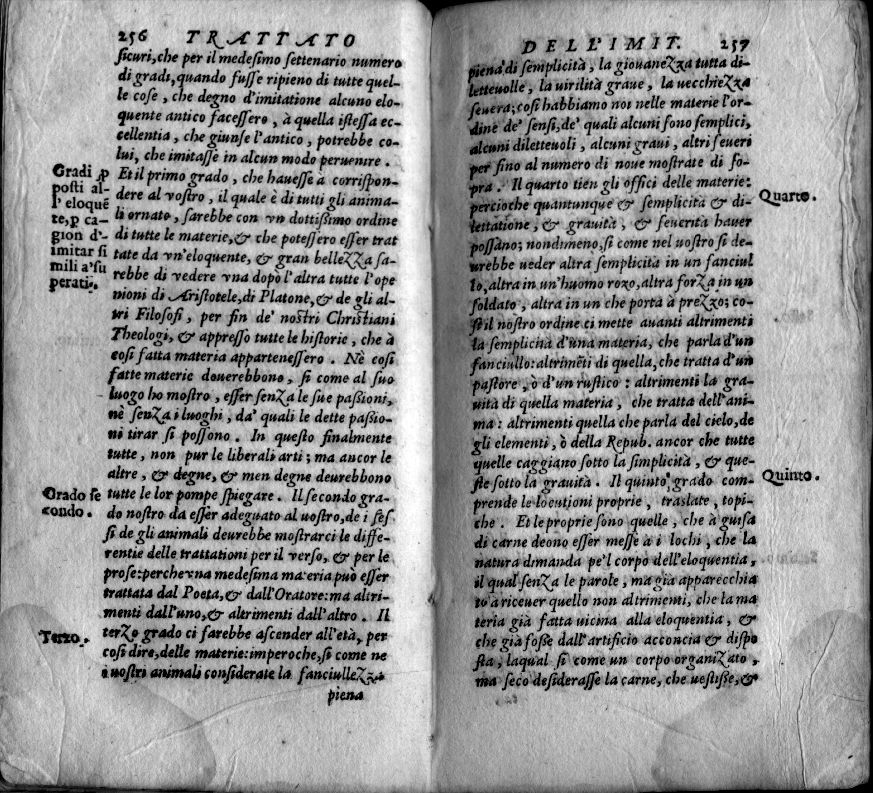 256 TRATTATO
ſicuri, che per il medeſimo ſettenario numero
di gradi, quando fuſſe ripieno di tutte quel-
le coſe, che degno d'imitatione alcuno elo-
quente antico faceſſero, à quella iſteſſa ec-
cellentia, che giunſe l'antico, potrebbe co-
lui, che imitaſſe in alcun modo peruenire.
Et il primo grado, che haueſſe à corriſpon-
dere al vostro, il quale è di tutti gli anima-
li ornato, ſarebbe con vn dottiſſimo ordine
di tutte le materie, & che poteſſero eſſer trat
tate da vn'eloquente, & gran bellezza ſa-
rebbe di vedere vna dopò l'altra tutte l'ope
nioni di Ariſtotele, di Platone, & de gli al-
tri Filoſofi, per fin de' noſtri Chriſtiani
Theologi, & appreſſo tutte le hiſtorie, che à
coſi fatta materia apparteneſſero. Nè coſi
fatte materie douerebbono, ſi come al ſuo
luogo ho moſtro, eſſer ſenza le ſue paſſioni,
nè ſenza i luoghi, da' quali le dette paſſio-
ni tirar ſi poſſono. In queſto finalmente
tutte, non pur le liberali arti; ma ancor le
altre, & degne, & men degne deurebbono
tutte le lor pompe ſpiegare. Il ſecondo gra-
do noſtro da eſſer adeguato al uoſtro, de i ſeſ
ſi de gli animali deurebbe moſtrarci le diffe-
rentie delle trattationi per il verſo, & per le
proſe: perche vna medeſima materia può eſſer
trattata dal Poeta, & dall'Oratore: ma altri-
menti dall'uno, & altrimenti dall'altro. Il
terzo grado ci ſarebbe aſcender all'età, per
coſi dire, delle materie: imperoche, ſi come ne
i uoſtri animali conſiderate la fanciullezza
piena
Gradi ꝓ
poſti al-
l' eloquẽ
te, ꝑ ca-
gion d'-
imitar ſi
mili a' ſu
perati.
Grado ſe
condo.
Terzo.
DELL'IMIT. 257
piena di ſemplicità, la giouanezza tutta di-
letteuolle, la uirilità graue, la uecchiezza
ſeuera; coſi habbiamo noi nelle materie l'or-
dine de' ſenſi, de' quali alcuni ſono ſemplici,
alcuni diletteuoli, alcuni graui, altri ſeueri
per fino al numero di noue moſtrate di ſo-
pra. Il quarto tien gli offici delle materie:
percioche quantunque & ſemplicità & di-
lettatione, & grauità, & ſeuerità hauer
poſſano; nondimeno, ſi come nel uoſtro ſi de-
urebbe ueder altra ſemplicità in un fanciul
lo, altra in un'huomo rozo, altra forza in un
ſoldato, altra in un che porta à prezzo; co-
ſi il noſtro ordine ci mette auanti altrimenti
la ſemplicità d'una materia, che parla d'un
fanciullo: altrimẽti di quella, che tratta d'un
paſtore, ò d'un ruſtico: altrimenti la gra-
uità di quella materia, che tratta dell'ani-
ma: altrimenti quella che parla del cielo, de
gli elementi, ò della Repub. ancor che tutte
quelle caggiano ſotto la ſimplicità, & que-
ſte ſotto la grauità. Il quinto grado com-
prende le locutioni proprie, traslate, topi-
che. Et le proprie ſono quelle, che à guiſa
di carne deono eſſer meſſe à i lochi, che la
natura dimanda pe'l corpo dell'eloquentia,
il qual ſenza le parole, ma già apparecchia
to à riceuer quello non altrimenti, che la ma
teria già fatta uicina alla eloquentia, &
che già foſſe dall'artificio acconcia & diſpo
ſta, laqual ſi come un corpo organizato,
ma ſeco deſideraſſe la carne, che ueſtiſſe, &
Quarto.
Quinto.